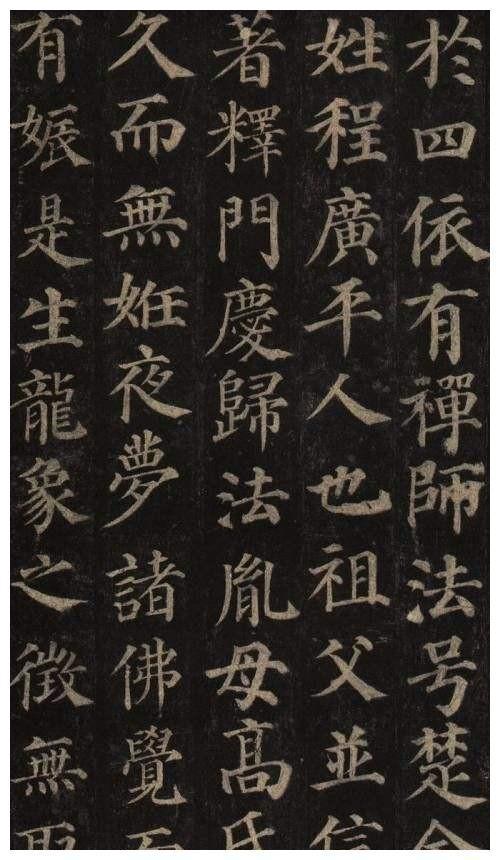 於四依有禪師法号楚
姓程廣平人也祖父並信
著釋門慶歸法胤母髙氏
久而無姙夜夢諸佛覺
有娠是生龍象之徵無取